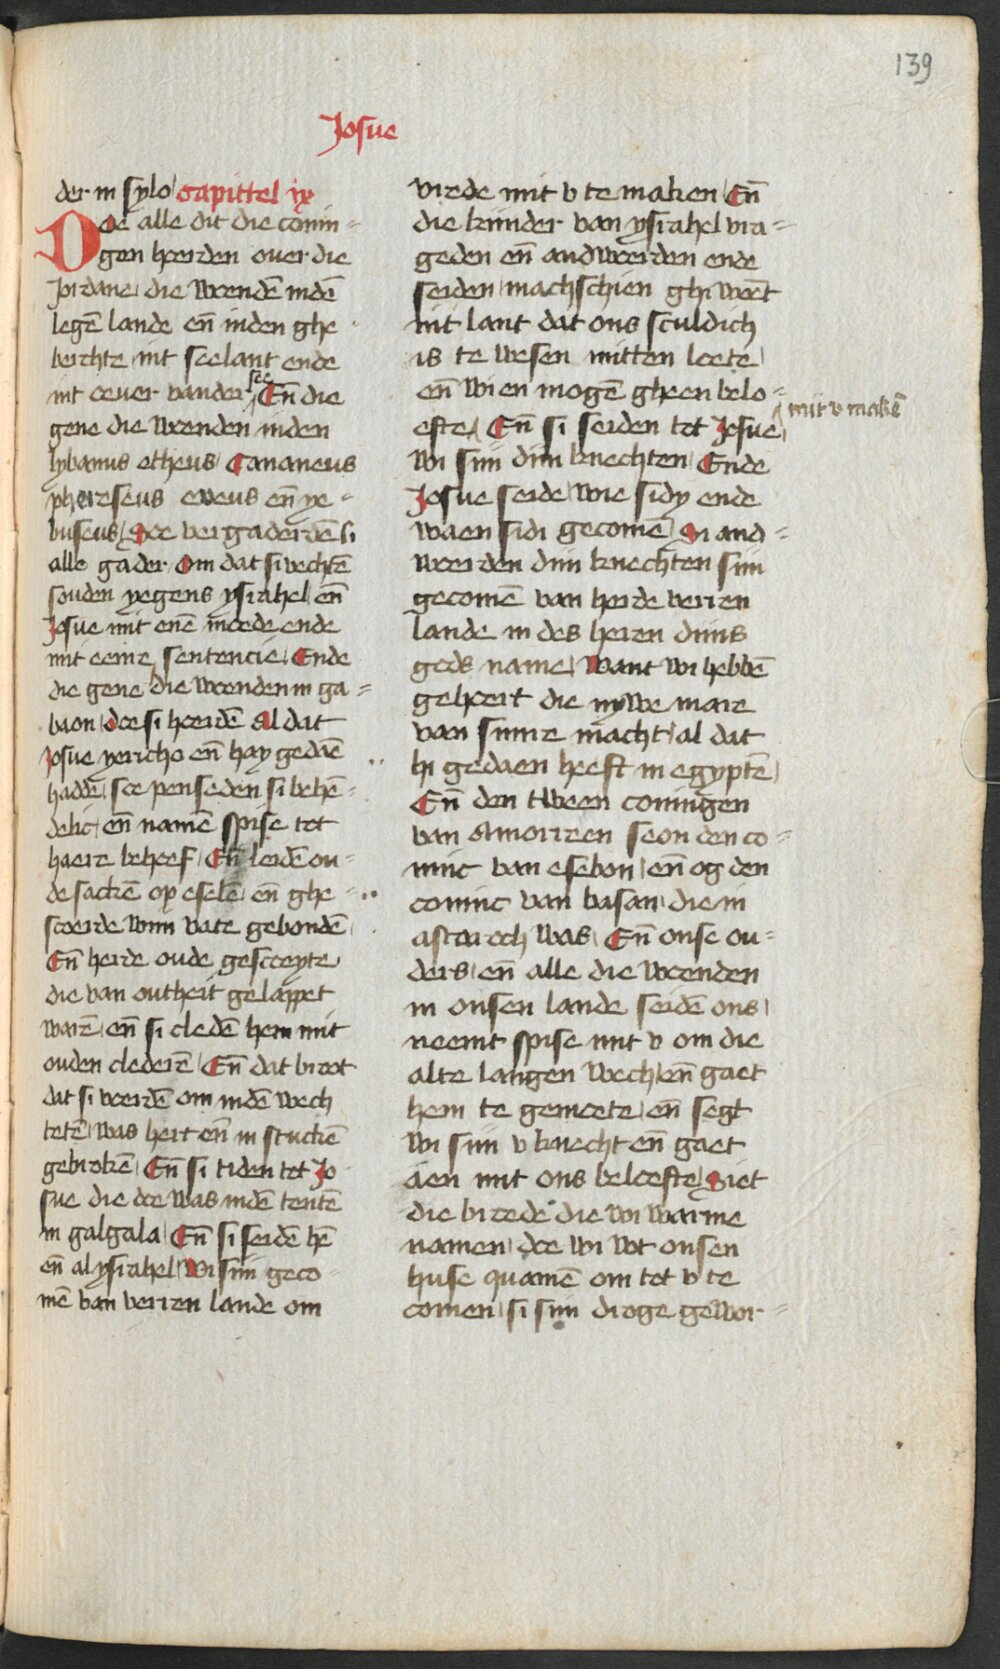 139
Josue
der in sylo capittel ix
Doe alle dit die conin=
gen hoerden ouer die
Jordane die woendē indē
legē lande eñ inden ghe
berchte int seelant ende
int oeuer vander see Eñ die
gene die woenden inden
lybanus etheus Cananeus
phereseus eueus eñ ye=
buseus Doe vergaderdē si
alle gader Om dat si vechtē
souden yegens ysrahel eñ
Josue mit enē moede ende
mit eenre sentencie Ende
die gene die woenden in ga=
baon doe si hoerdē al dat
Josue yericho eñ hay gedaē
haddē soe penseden si behē=
delic eñ namē spise tot
haere behoef Eñ leidē ou=
de sackē op eselē eñ ghe=
scoerde wijn vate gebondē
Eñ herde oude gescoeyte
die van outheit gelappet
warē eñ si cledē hem mit
ouden clederē Eñ dat broot
dat si voerdē om indē wech
tetē was hert eñ in stuckē
gebrokē Eñ si tiden tot Jo
sue die doe was indē tentē
in galgala Eñ si seidē hē
eñ al ysrahel Wi sijn geco=
mē van verren lande om
vrede mit v te maken Eñ
die kijnder van ysrahel vra=
geden eñ andwoerden ende
seiden machschien ghi woēt
int lant dat ons sculdich
is te wesen mitten loete
eñ wi en mogē gheen belo=
efte mit v makē Eñ si seiden tot Josue
wi sijn dijn knechten Ende
Josue seide wie sidy ende
waen sidi gecomē Si and=
woerden dijn knechten sijn
gecomē van herde verren
lande in des heren dijns
gods name Want wi hebbē
gehoert die nywe mare
van sijnre macht al dat
hi gedaen heeft in egyptē
Eñ den tween coningen
van Amorreen seon den co=
ninc van esebon eñ og den
coninc van basan die in
astaroch was Eñ onse ou=
ders eñ alle die woenden
in onsen lande seidē ons
neemt spise mit v om die
alte langen wech eñ gaet
hem te gemoete eñ segt
wi sijn v knecht eñ gaet
aen mit ons beloefte Siet
die brode die wi warme
namen doe wi wt onsen
huse quamē om tot v te
comen si sijn droge gewor=